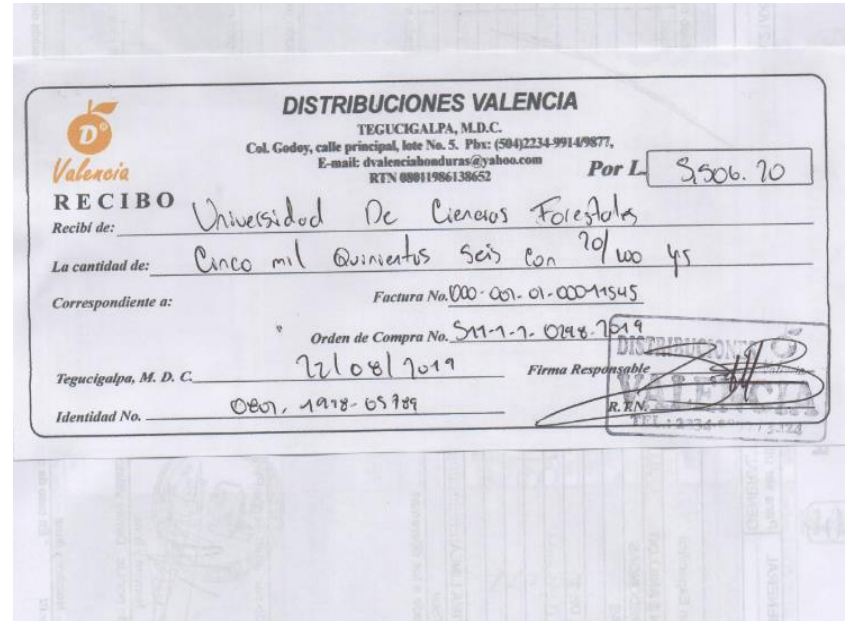 DISTRIBUCIONES VALENCIA
TEGUCIGALPA, M.D.C.
Col. Godoy, calle principal, lote No. 5. Pbx: (504)2234-9914/9877,
E-mail: dvalenciahonduras@yahoo.com
RTN 08011986138652
D
Valencia
Por L. 5,506.20
RECIBO
Recibí de: Universidad De Ciencias Forestales
La cantidad de: Cinco mil Quinientos Seis Con 20/100
Correspondiente a:
Factura No. 000-001-01-00011545
Orden de Compra No. 511-1-1-0298-2019
Tegucigalpa, M. D. C. 22/08/2019
Firma Responsable
Identidad No. 0801-1978-05789
R.T.N.
DISTRIBUCIONES
VALENCIA